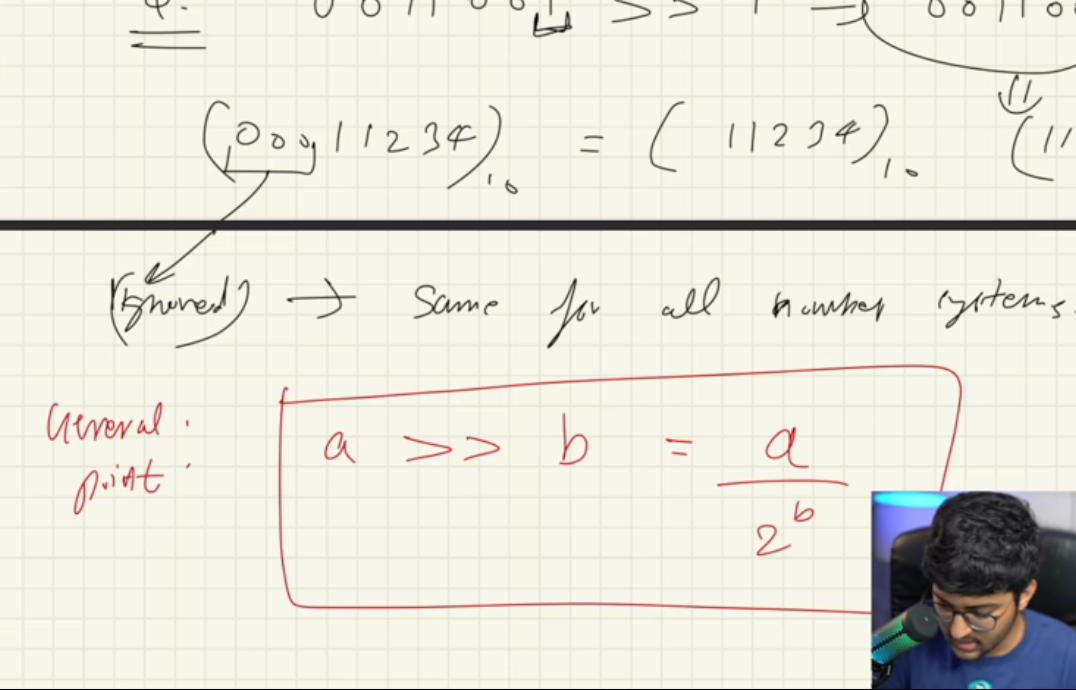 0 0 1 1 0 0 1 >> 1 ⇒ 0 0 1 1 0
(00011234)₁₀ = (11234)₁₀ (11
(Ignored) → Same for all number systems.
General point:
a >> b = a / 2^b